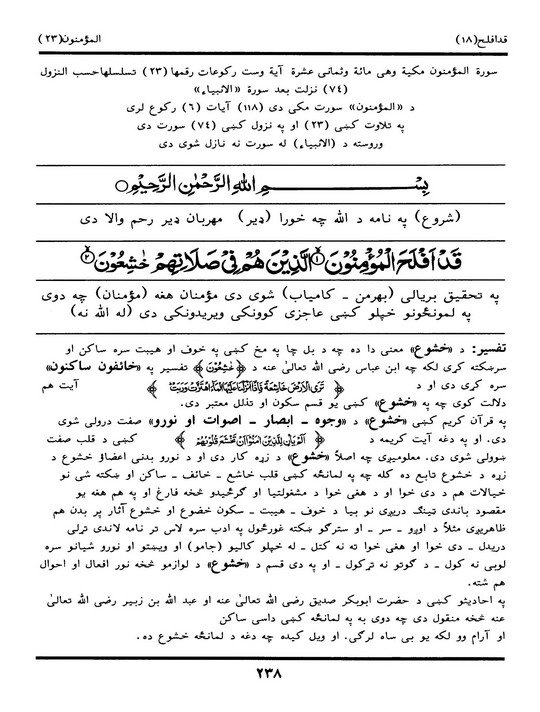 قدافلح(۱۸)
المؤمنون(۲۳)
سورة المؤمنون مكية وهى مائة وثمانى عشرة آية وست ركوعات رقمها (۲۳) تسلسلهاحسب النزول
(۷۴) نزلت بعد سورة «الانبياء»
د «المؤمنون» سورت مكى دى (۱۱۸) آيات (۶) ركوع لرى
په تلاوت كښى (۲۳) او په نزول كښى (۷۴) سورت دى
وروسته د (الانبياء) له سورت نه نازل شوى دى
بِسْمِ اللهِ الرَّحْمٰنِ الرَّحِيْمِ
(شروع) په نامه د الله چه خورا (ډير) مهربان ډير رحم والا دى
قَدْ اَفْلَحَ الْمُؤْمِنُوْنَ ۱ الَّذِيْنَ هُمْ فِىْ صَلَاتِهِمْ خٰشِعُوْنَ ۲
په تحقيق بريالى (بهرمن ـ كامياب) شوى دى مؤمنان هغه (مؤمنان) چه دوى
په لمونځونو خپلو كښى عاجزى كوونكى ويريدونكى دى (له الله نه)
تفسير: د «خشوع» معنى دا ده چه د بل چا په مخ كښى په خوف او هيبت سره ساكن او
سرښكته كړى لكه چه ابن عباس رضى الله تعالىٰ عنه د ﴿خٰشِعُوْنَ﴾ تفسير په «خائفون ساكنون»
سره كړى دى او د ﴿تَرَى الْاَرْضَ خَاشِعَةً فَاِذَآ اَنْزَلْنَا عَلَيْهَا الْمَآءَ اهْتَزَّتْ وَرَبَتْ﴾ آيت هم
دلالت كوى چه په «خشوع» كښى يو قسم سكون او تذلل معتبر دى.
په قرآن كريم كښى «خشوع» د «وجوه ـ ابصار ـ اصوات او نورو» صفت درولى شوى
دى. او په دغه آيت كريمه د ﴿اَلَمْ يَاْنِ لِلَّذِيْنَ اٰمَنُوْٓا اَنْ تَخْشَعَ قُلُوْبُهُمْ﴾ كښى د قلب صفت
ښوولى شوى دى. معلوميږى چه اصلاً «خشوع» د زړه كار دى او د نورو بدنى اعضاؤ خشوع د
زړه د خشوع تابع ده كله چه په لمانځه كښى قلب خاشع ـ خائف ـ ساكن او ښكته شى نو
خيالات هم د دى خوا او د هغى خوا د مشغولتيا او ګرځيدو څخه فارغ او په هم هغه يو
مقصود باندى ټينګ دريږى نو بيا د خوف ـ هيبت ـ سكون خضوع او خشوع آثار پر بدن هم
ظاهريږى مثلاً د اوږو ـ سر ـ او سترګو ښكته غورځول په ادب سره لاس تر نامه لاندى تړلى
دريدل ـ دى خوا او هغى خوا ته نه كتل ـ له خپلو كاليو (جامو) او ويښتو او نورو شيانو سره
لوبى نه كول ـ د ګوتو نه ترِكول ـ او په دى قسم د «خشوع» د لوازمو څخه نور افعال او احوال
هم شته.
په احاديثو كښى د حضرت ابوبكر صديق رضى الله تعالىٰ عنه او عبد الله بن زبير رضى الله تعالىٰ
عنه څخه منقول دى چه دوى به په لمانځه كښى داسى ساكن
او آرام وو لكه يو بى ساه لرګى. او ويل كيده چه دغه د لمانځه خشوع ده.
۲۳۸